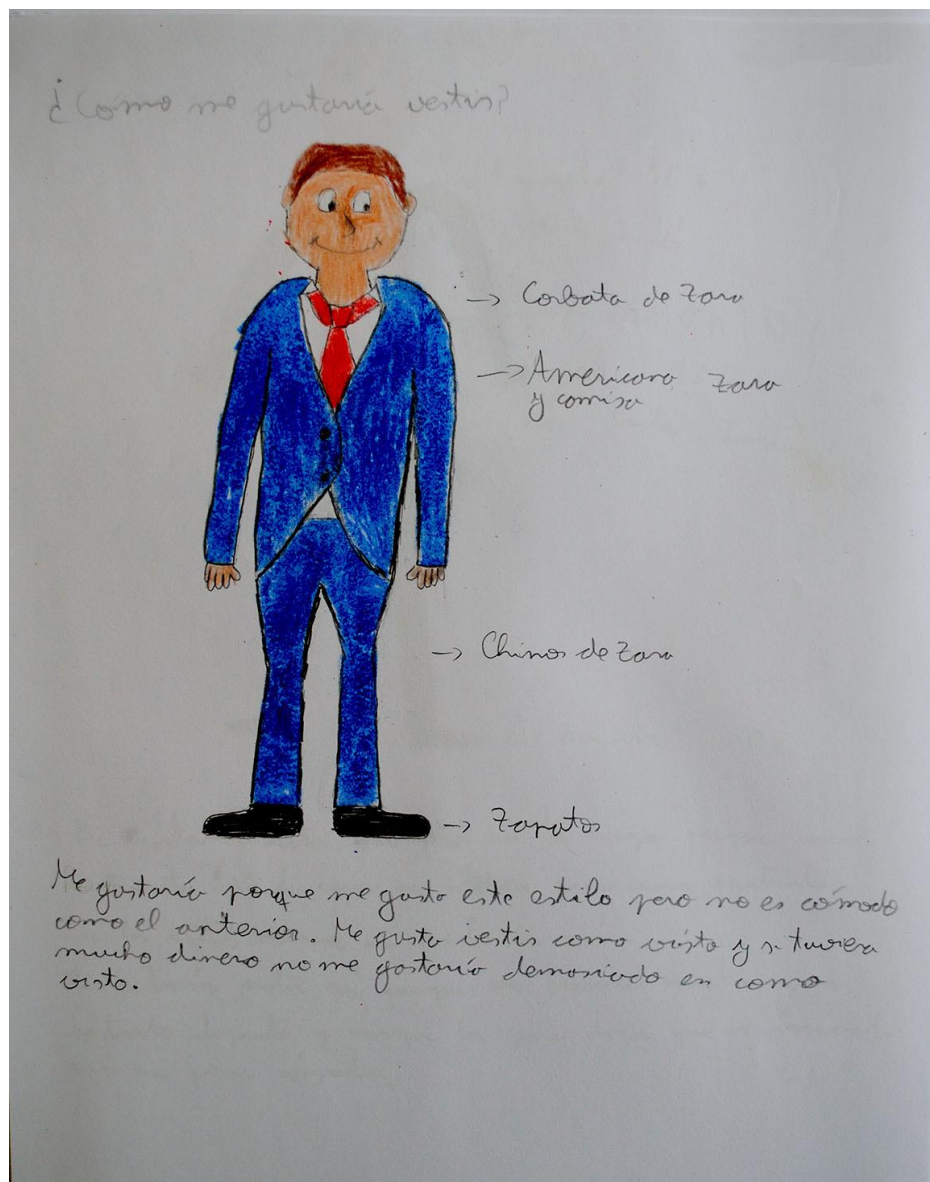 ¿Cómo me gustaría vestir?
→ Corbata de Zara
→ Americana Zara
y camisa
→ Chinos de Zara
→ Zapatos
Me gustaría porque me gusta este estilo pero no es cómodo
como el anterior. Me gusta vestir como visto y si tuviera
mucho dinero no me gastaría demasiado en como
visto.